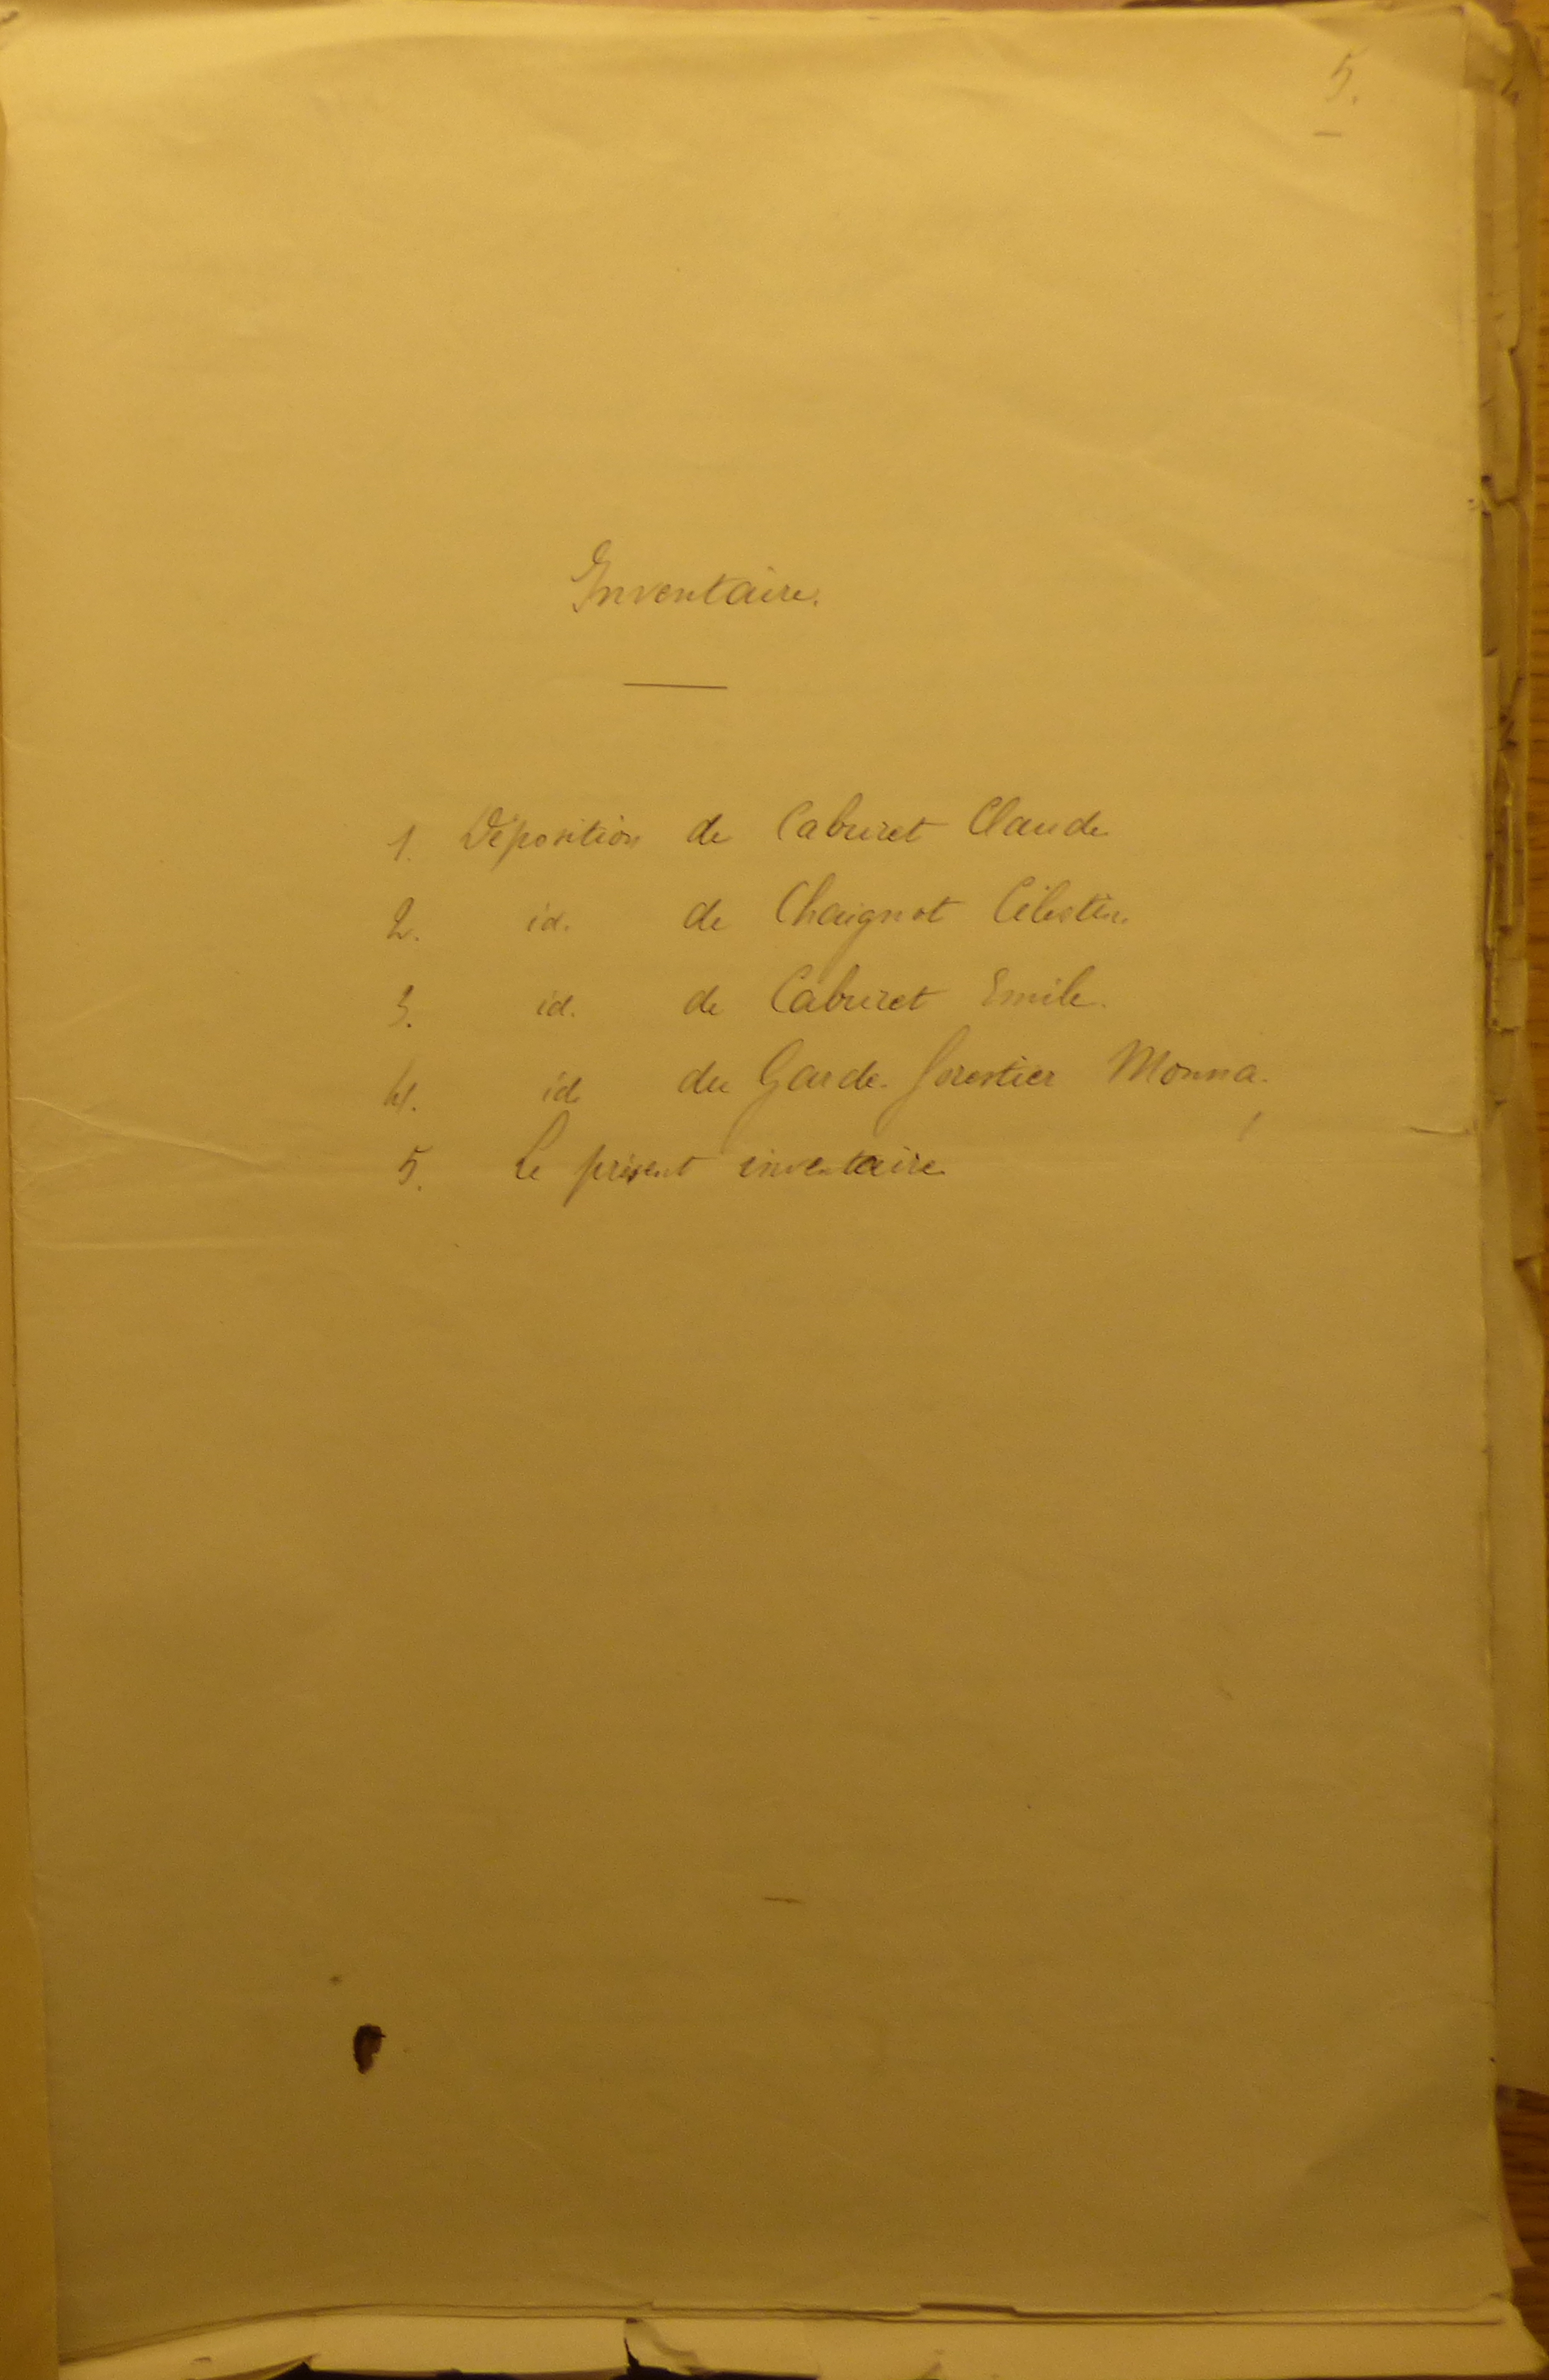 5.
Inventaire.
1. Déposition de Caburet Claude
2. id. de Chaignot Célestin.
3. id. de Caburet Emile.
4. id. du Garde forestier Monna.
5. Le présent inventaire